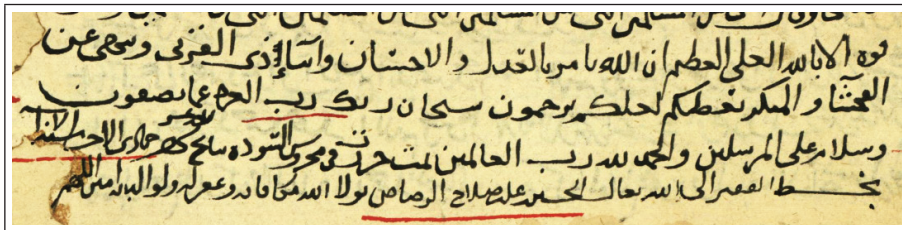 قوة الا بالله العلي العظيم ان الله يامر بالعدل والاحسان وايتاء ذي القربى وينهى عن
الفحشاء والمنكر يعظكم لعلكم ترحمون سبحان ربك رب العزه عما يصفون
وسلام على المرسلين والحمد لله رب العالمين تمت حررت في محروس السوده سلخ شهر جمادى الاخر
بخط الفقير الى الله تعالى الحسين علي صلاح الرصاص تولا الله مكافاته وغفر له ولوالديه امين اللهم